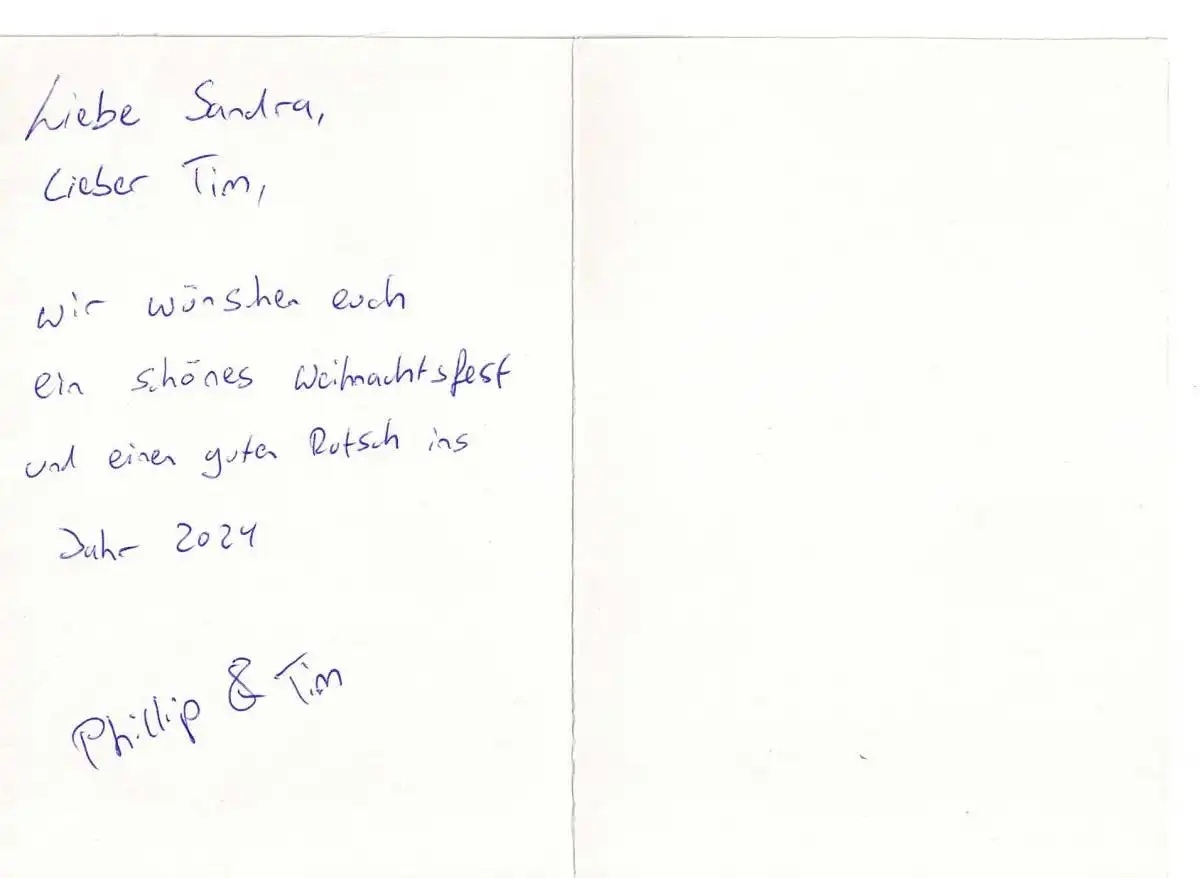 Liebe Sandra,
Lieber Tim,
wir wünschen euch
ein schönes Weihnachtsfest
und einen guten Rutsch ins
Jahr 2024
Phillip & Tim